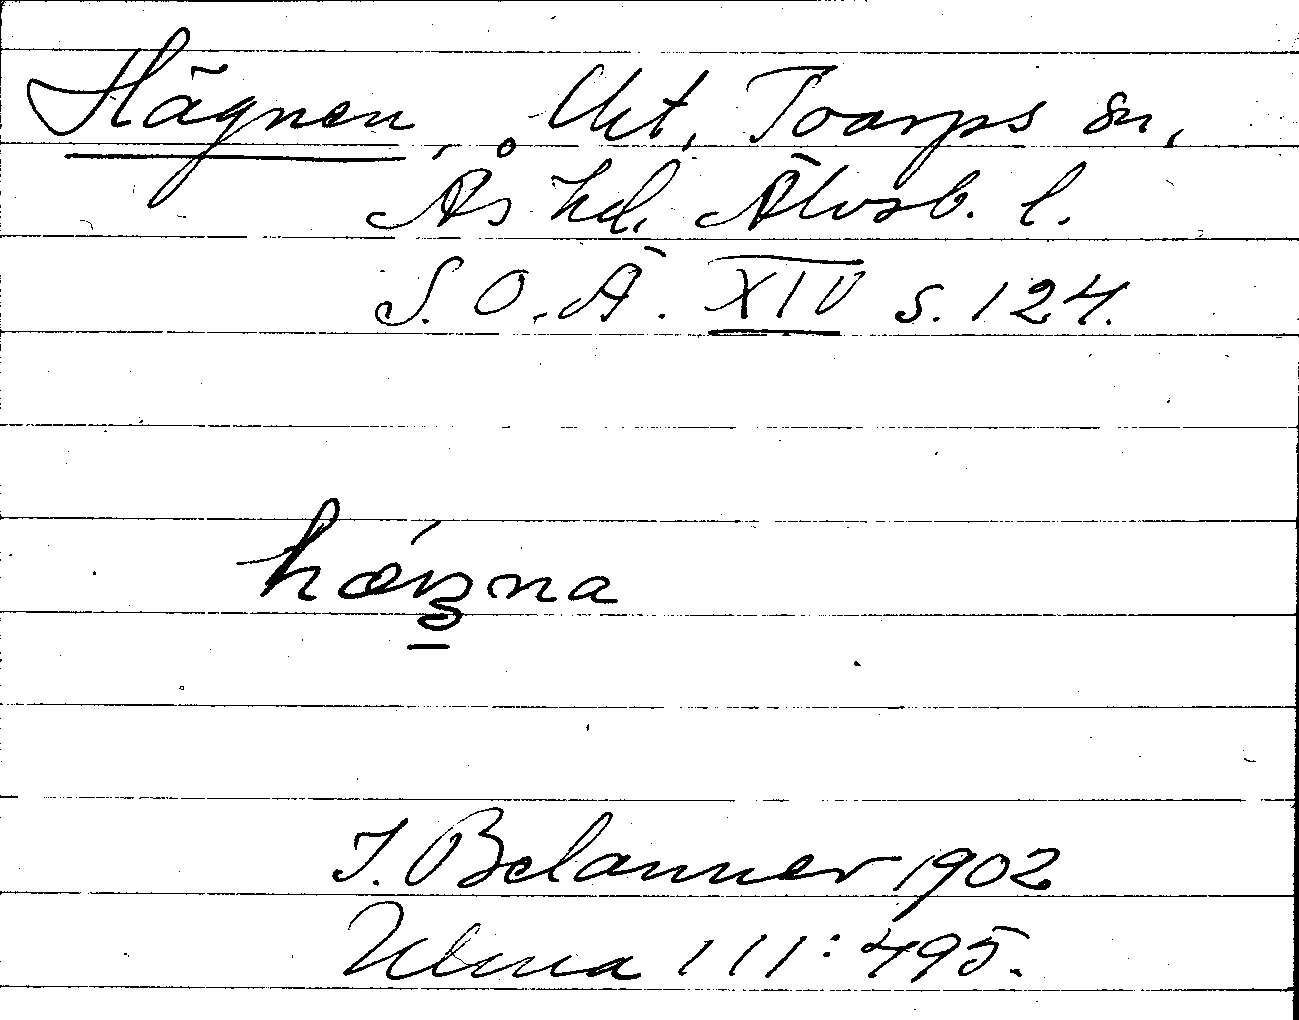 Hägnen, Ukt, Toarps sn,
Ås hd, Älvsb. l.
S.O.Ä. XIV s. 124.
J. Belanner 1902
Ulma 111:495.